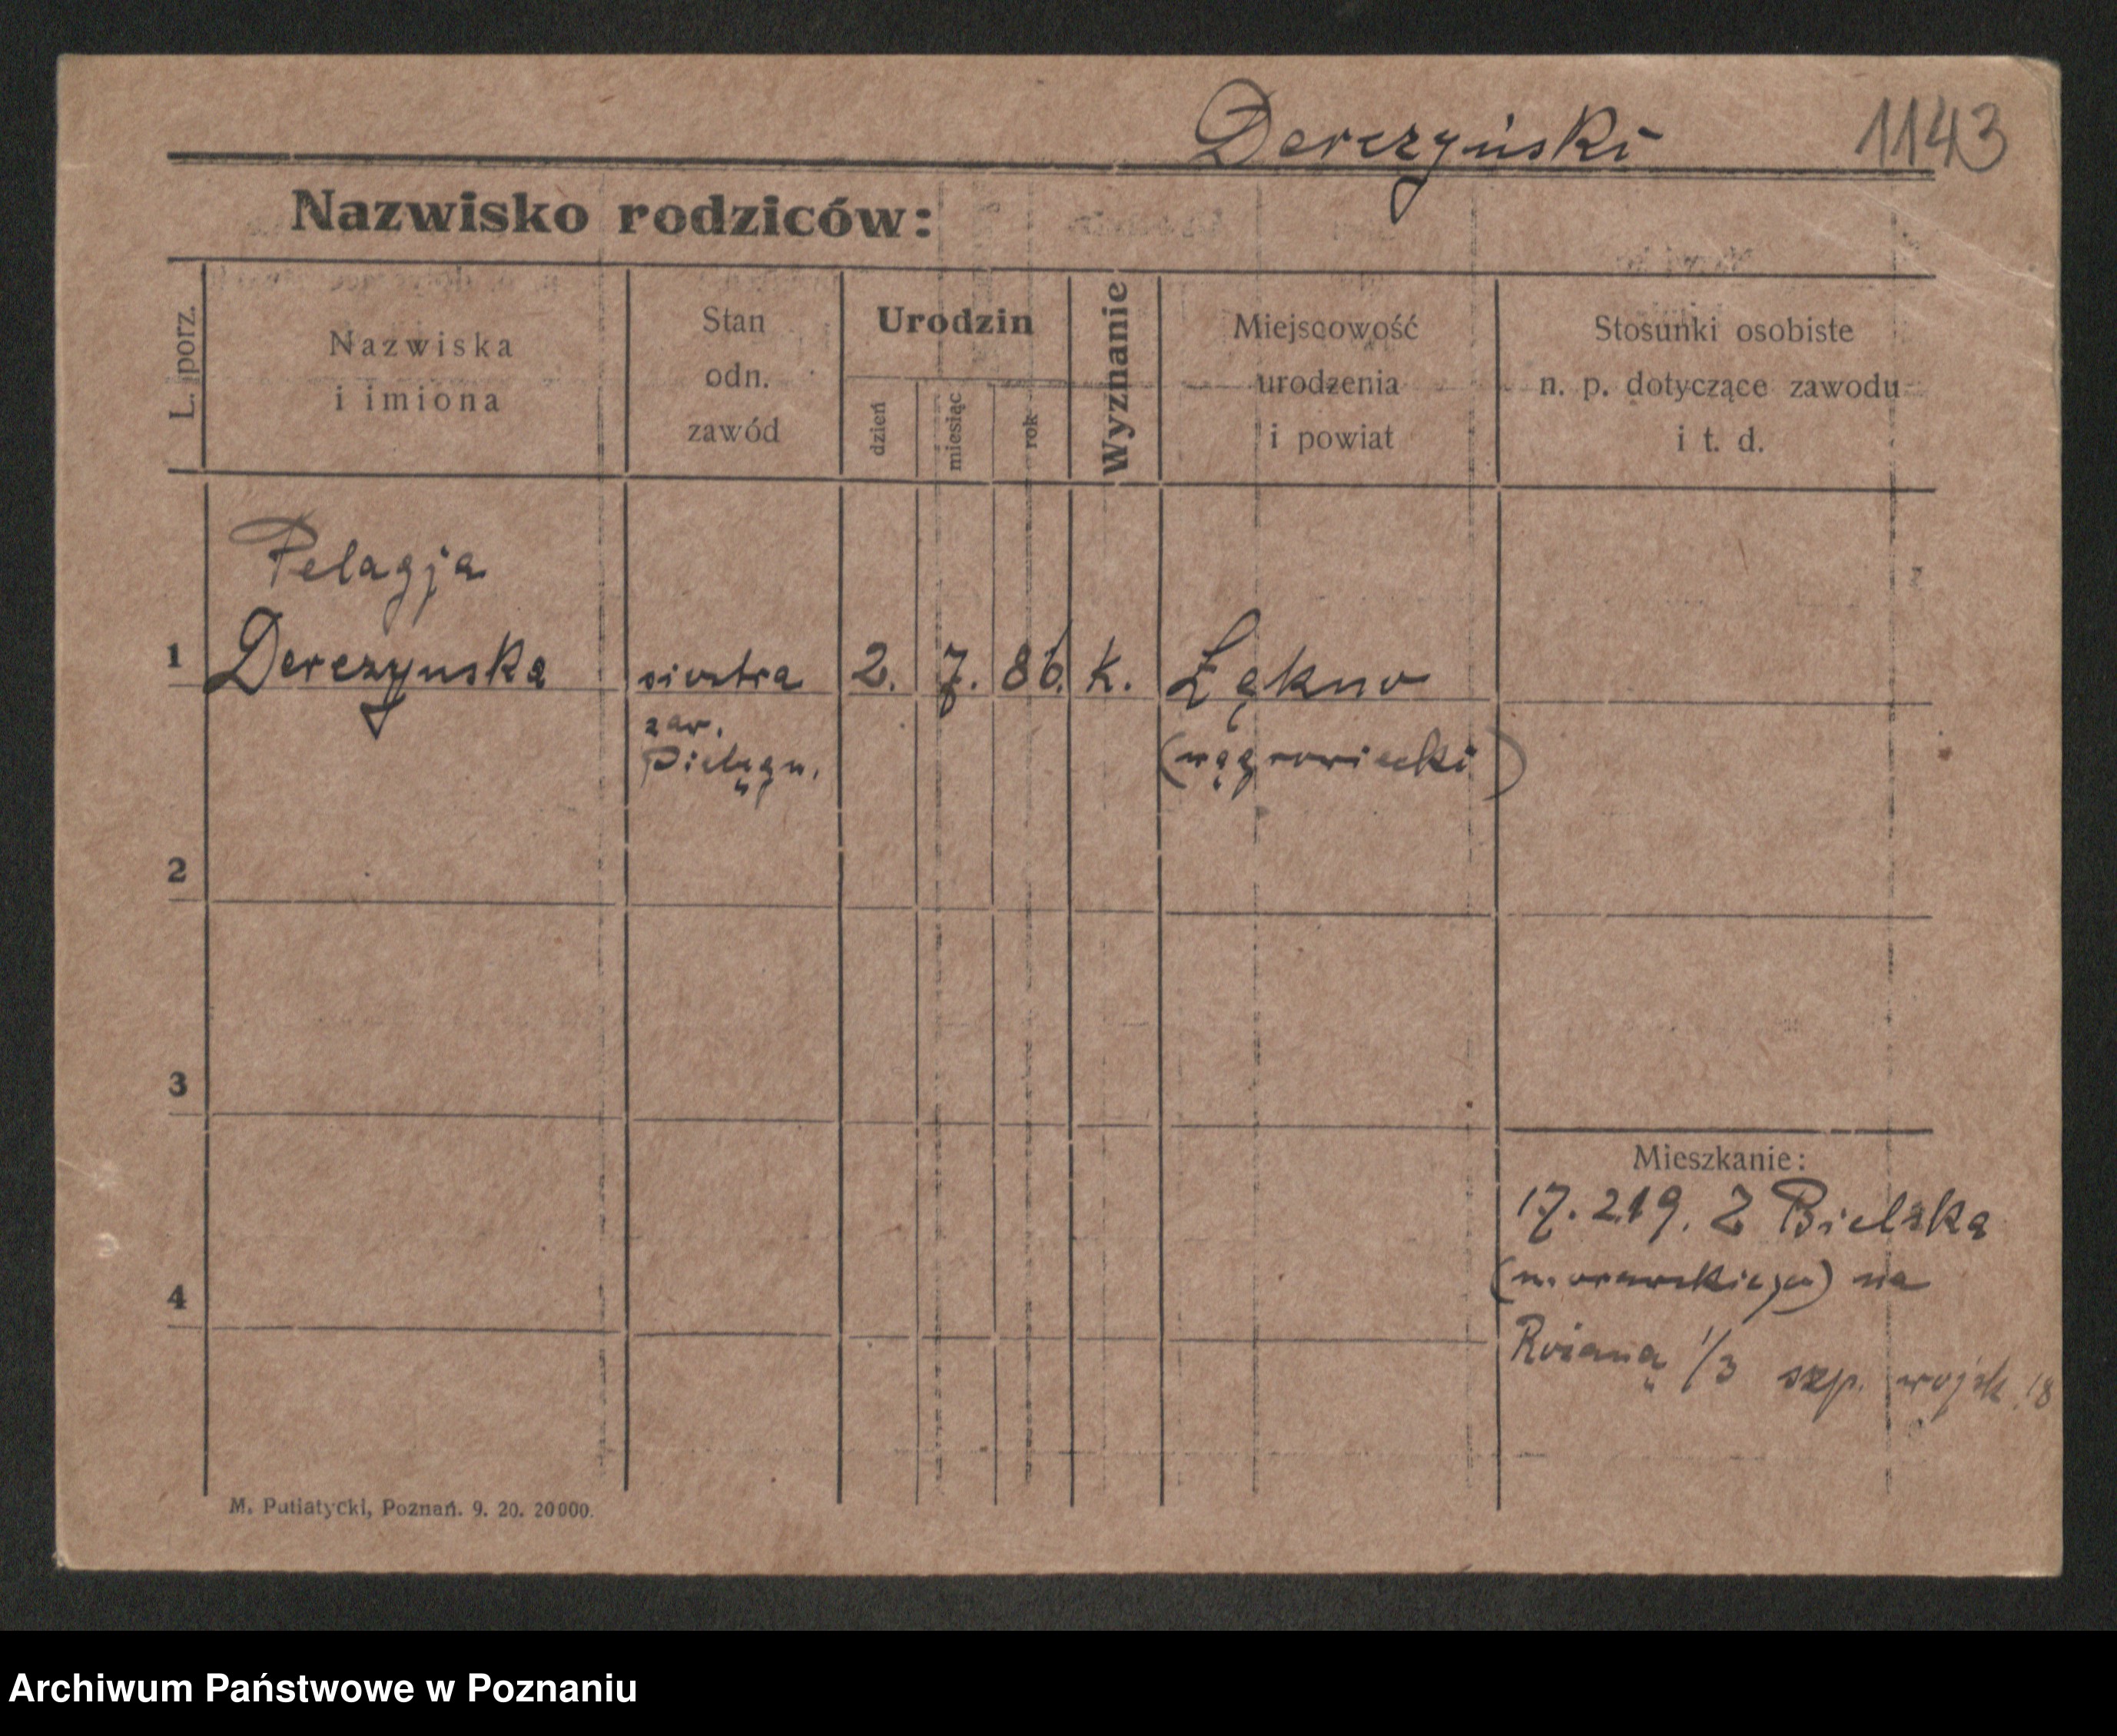 Derezyński 1143
Nazwisko rodziców:
L. porz.
Nazwiska
i imiona
Stan
odn.
zawód
Urodzin
dzień
miesiąc
rok
Wyznanie
Miejscowość
urodzenia
i powiat
Stosunki osobiste
n. p. dotyczące zawodu
i t. d.
Pelagja
1 Derezynska siostra 2. 7. 86. k. Łękno
zaw.
pielęgn. (wągrowiecki)
2
3
Mieszkanie:
17.2.19. Z Bielska
4 (morawskiego) na
Różaną 1/3 szp. wojsk. 18
M. Putiatycki, Poznań. 9. 20. 20000.
Archiwum Państwowe w Poznaniu